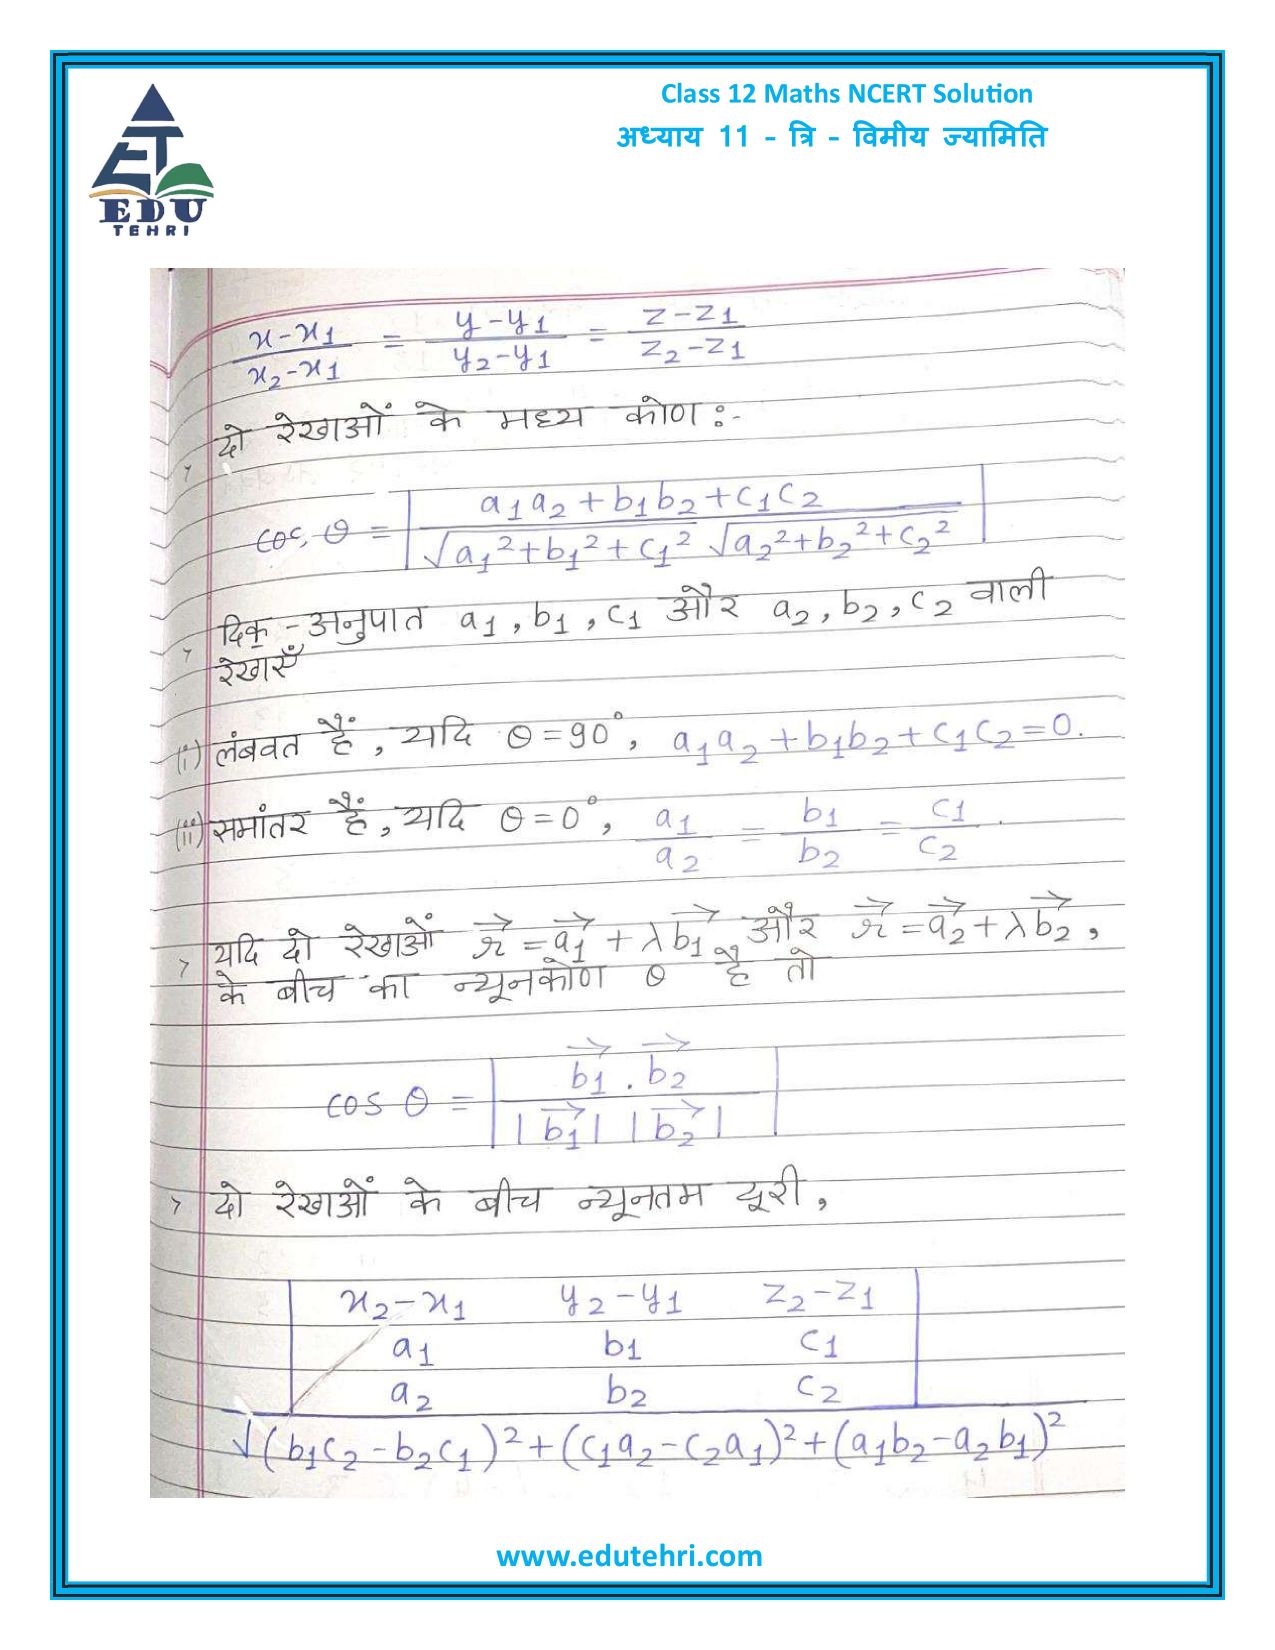 Class 12 Maths NCERT Solution
अध्याय 11 - त्रि - विमीय ज्यामिति
EDU
TEHRI
x-x₁/x₂-x₁ = y-y₁/y₂-y₁ = z-z₁/z₂-z₁
> दो रेखाओं के मध्य कोण :-
cos θ = |a₁a₂+b₁b₂+c₁c₂ / √a₁²+b₁²+c₁² √a₂²+b₂²+c₂²|
> दिक् - अनुपात a₁, b₁, c₁ और a₂, b₂, c₂ वाली
रेखाएँ
(i) लंबवत हैं, यदि θ = 90°, a₁a₂+b₁b₂+c₁c₂=0.
(ii) समांतर हैं, यदि θ = 0°, a₁/a₂ = b₁/b₂ = c₁/c₂.
> यदि दो रेखाओं r⃗ = a₁⃗ + λb₁⃗ और r⃗ = a₂⃗ + λb₂⃗,
के बीच का न्यूनकोण θ है तो
cos θ = |b₁⃗ . b₂⃗ / |b₁⃗| |b₂⃗||
> दो रेखाओं के बीच न्यूनतम दूरी,
| x₂-x₁ y₂-y₁ z₂-z₁ |
| a₁ b₁ c₁ |
| a₂ b₂ c₂ |
√(b₁c₂-b₂c₁)²+(c₁a₂-c₂a₁)²+(a₁b₂-a₂b₁)²
www.edutehri.com